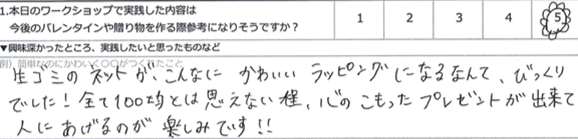 1.本日のワークショップで実践した内容は
今後のバレンタインや贈り物を作る際参考になりそうですか？ 1 2 3 4 5
▼興味深かったところ、実践したいと思ったものなど
例）簡単なのにかわいく〇〇がつくれたこと
生ゴミのネットが、こんなに かわいい ラッピングになるなんて、びっくり
でした！全て100均とは思えない程、心のこもったプレゼントが出来て
人にあげるのが 楽しみです!!